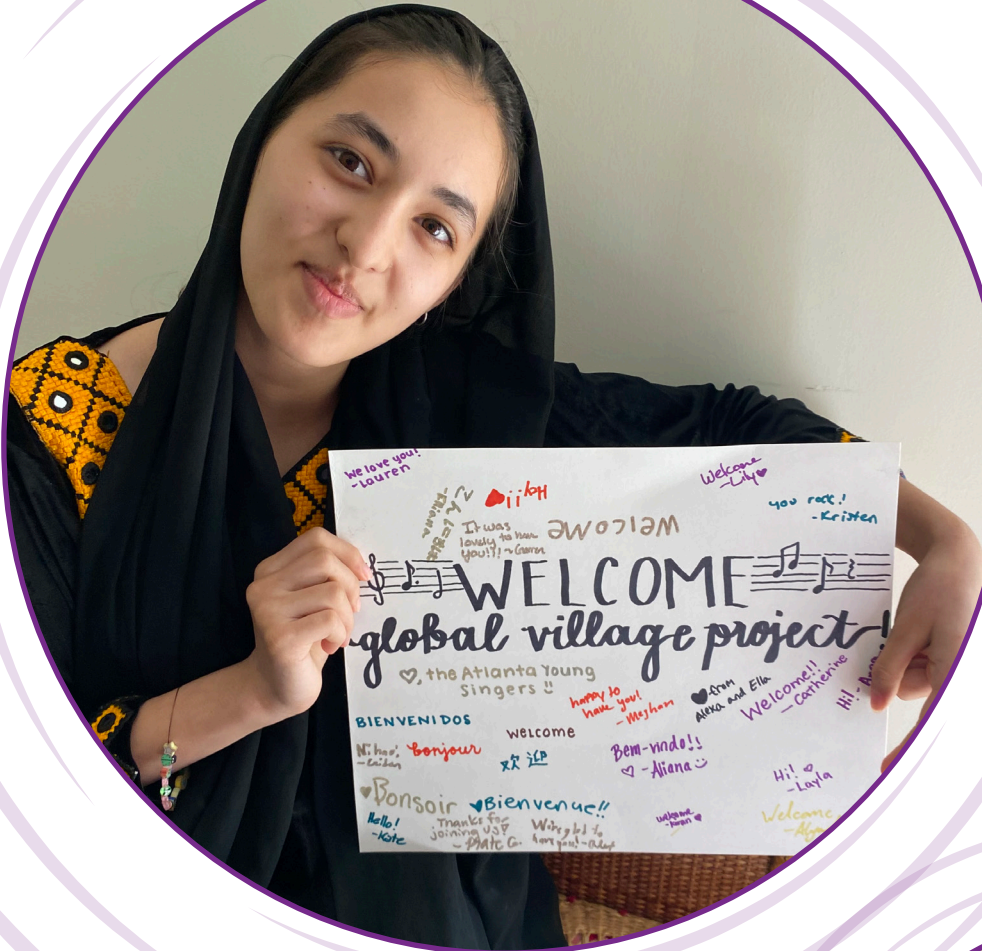 we love you!
-Lauren
Hoy!!
Welcome
-Lily
you rock!
-Kristen
It was
lovely to hear
you!!! ~
WELCOME
WELCOME
global village project!
the Atlanta Young
Singers
happy to
have you!
-Meghan
from
Alexa and Ella
Welcome!!
-Catherine
Hi! -
BIENVENIDOS
welcome
Ni hao!
Bonjour
欢迎
Bem-vindo!!
-Aliana
Hi!
-Layla
Bonsoir
Bienvenue!!
Hello!
-Kate
Thanks for
joining us!
We're glad to
have you! -
welcome
Welcome